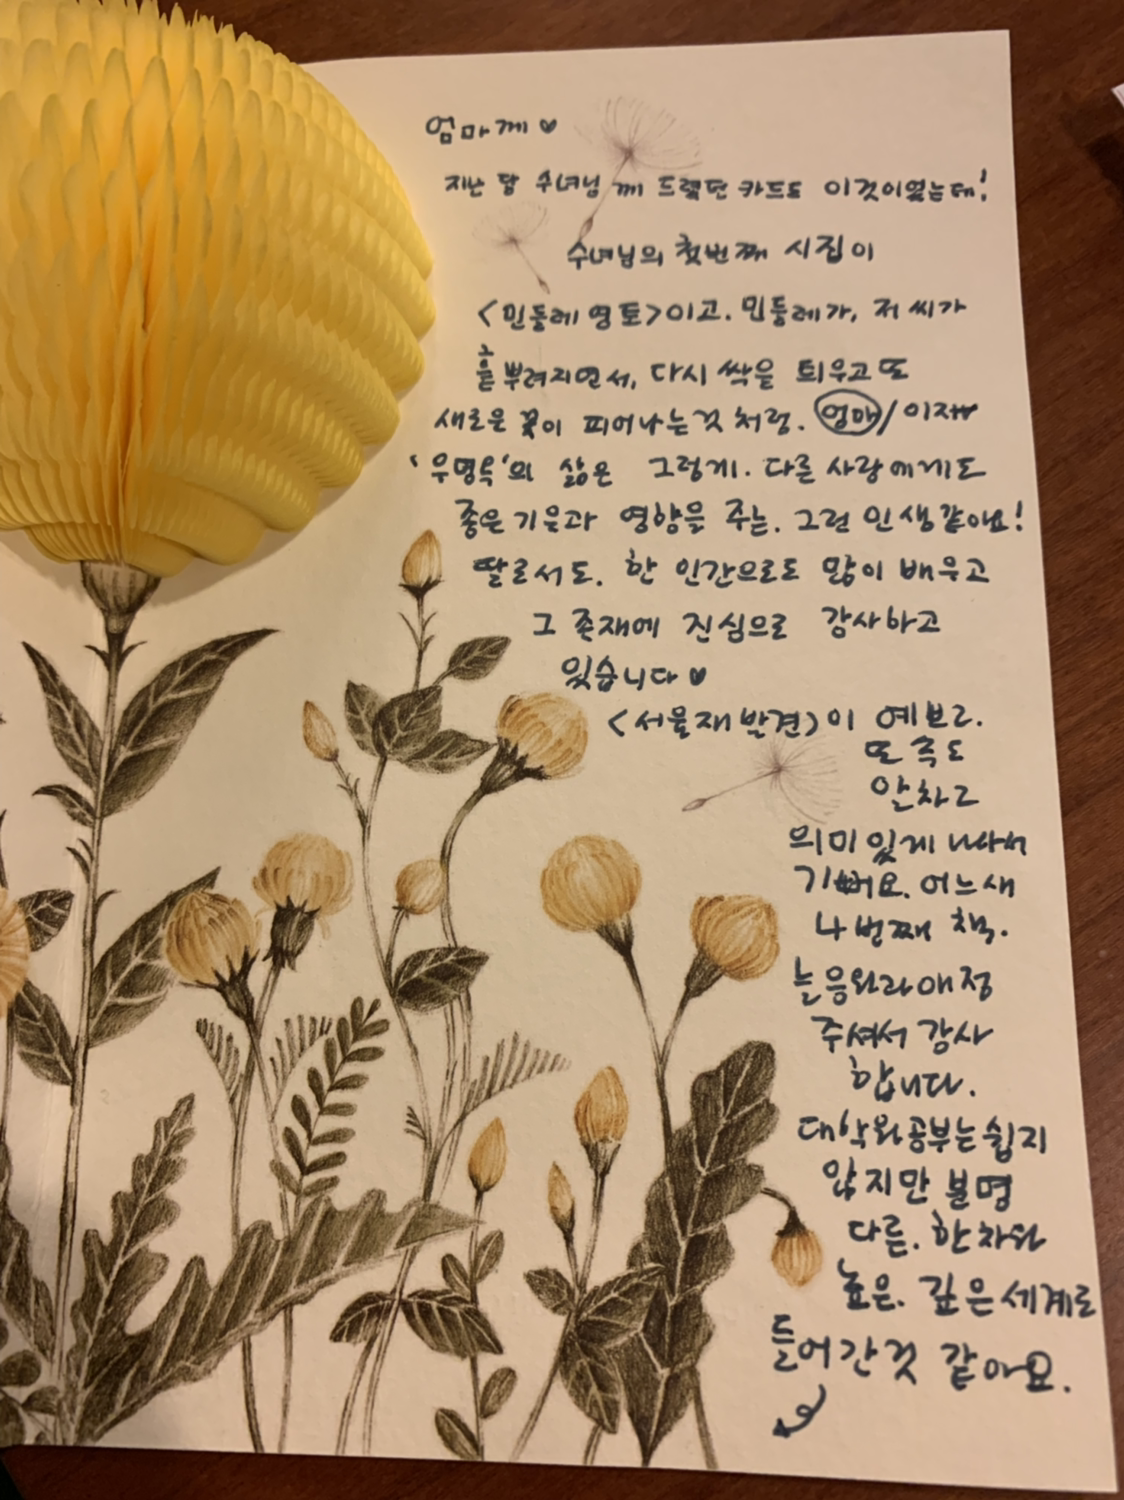 엄마께 ♥
지난 달 수녀님께 드렸던 카드도 이것이었는데!
수녀님의 첫번째 시집이
<민들레 영토>이고. 민들레가, 저 씨가
흩뿌려지면서, 다시 싹을 틔우고 또
새로운 꽃이 피어나는것 처럼. 엄마/이자
'우명옥'의 삶은 그렇게. 다른 사람에게도
좋은 기운과 영향을 주는. 그런 인생같아요!
딸로서도. 한 인간으로도 많이 배우고
그 존재에 진심으로 감사하고
있습니다 ♥
<서울재발견>이 예쁘고.
또 속도
알차고
의미 있게 나와서
기뻐요. 어느새
네 번째 책.
늘 응원과 애정
주셔서 감사
합니다.
대학원공부는 쉽지
않지만 분명
다른. 한 차원
높은. 깊은 세계로
들어간것 같아요.